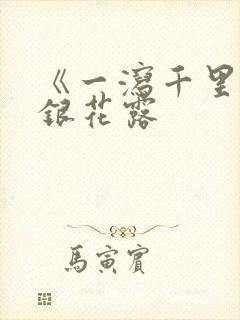 《一瀉千里
銀花露
馬寅賓